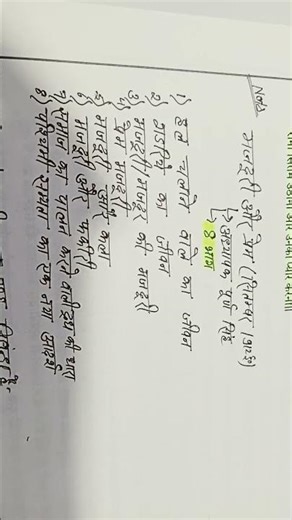 Note
मजदूरी और प्रेम (सितम्बर 1912)
↳ अध्यापक पूर्ण सिंह
↳ 8 भाग
1) हल चलाने वाले का जीवन
2) गड़रिये का जीवन
3) मजदूरी/मजदूर की मजदूरी
4) प्रेम मजदूरी
5) मजदूरी और कला
6) मजदूरी और फकीरी
7) समाज का पालन करने वाली दूध की धारा
8) पश्चिमी सभ्यता का एक नया आदर्श